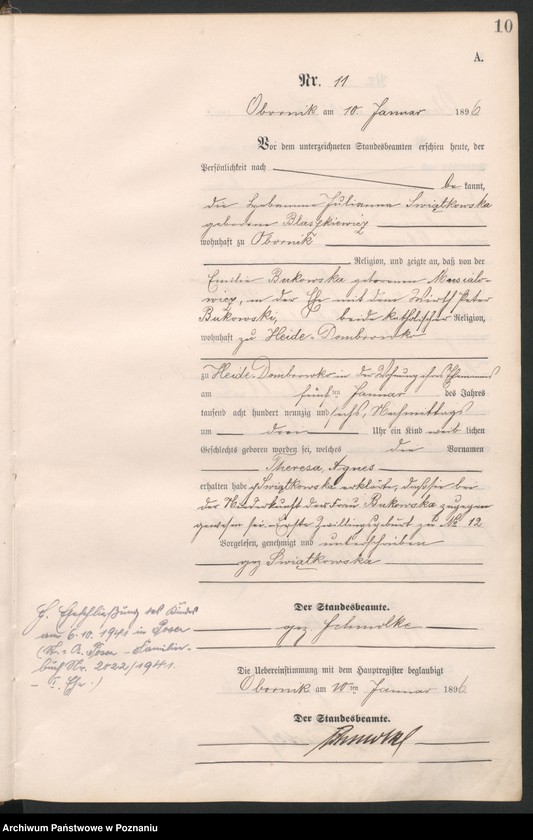 10
A.
Nr. 11
Obornik am 10. Januar 1896
Vor dem unterzeichneten Standesbeamten erschien heute, der
Persönlichkeit nach
be kannt,
die Hebamme Julianna Swiątkowska
geborene
wohnhaft zu Obornik
Religion, und zeigte an, daß von der
Emilie Bukowska geborenen
in der Ehe mit dem Wirth Peter
Bukowski, beide katholischer Religion,
wohnhaft zu Heide-Dombrowko
zu Heide-Dombrowko in der Wohnung ihres Ehemannes
am fünften Januar des Jahres
tausend acht hundert neunzig und sechs, Nachmittags
um drei Uhr ein Kind weib lichen
Geschlechts geboren worden sei, welches die Vornamen
Theresa, Agnes
erhalten habe. Swiątkowska erklärte, daß sie bei
der Niederkunft der Frau Bukowska zugegen
gewesen sei. Erste Zwillingsgeburt zu No 12
Vorgelesen, genehmigt und unterschrieben
gez Swiątkowska
Der Standesbeamte.
gez Schmolke
Die Uebereinstimmung mit dem Hauptregister beglaubigt
Obornik am 10ten Januar 1896
Der Standesbeamte.
Schmolke
Eheschließung des Kindes
am 6.10.1941 in Posen
(St. A. Posen - Familien-
buch Nr. 2022/1941.
- I. Ehe.)
Archiwum Państwowe w Poznaniu